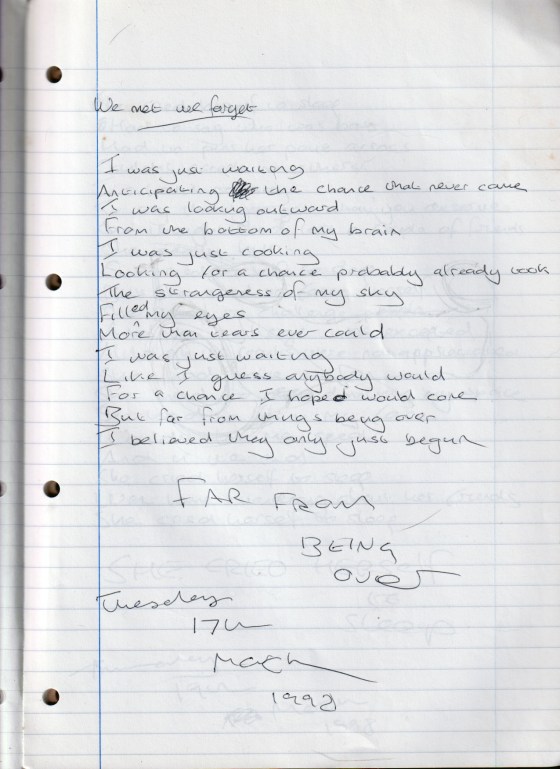 We met we forget
I was just waiting
Anticipating the chance that never came
I was looking outward
From the bottom of my brain
I was just cooking
Looking for a chance probably already took
The strangeness of my sky
Filled my eyes
More than tears ever could
I was just waiting
Like I guess anybody would
For a chance I hoped would come
But far from things being over
I believed they only just begun
FAR FROM
BEING
OVER
Tuesday
17th
March
1998